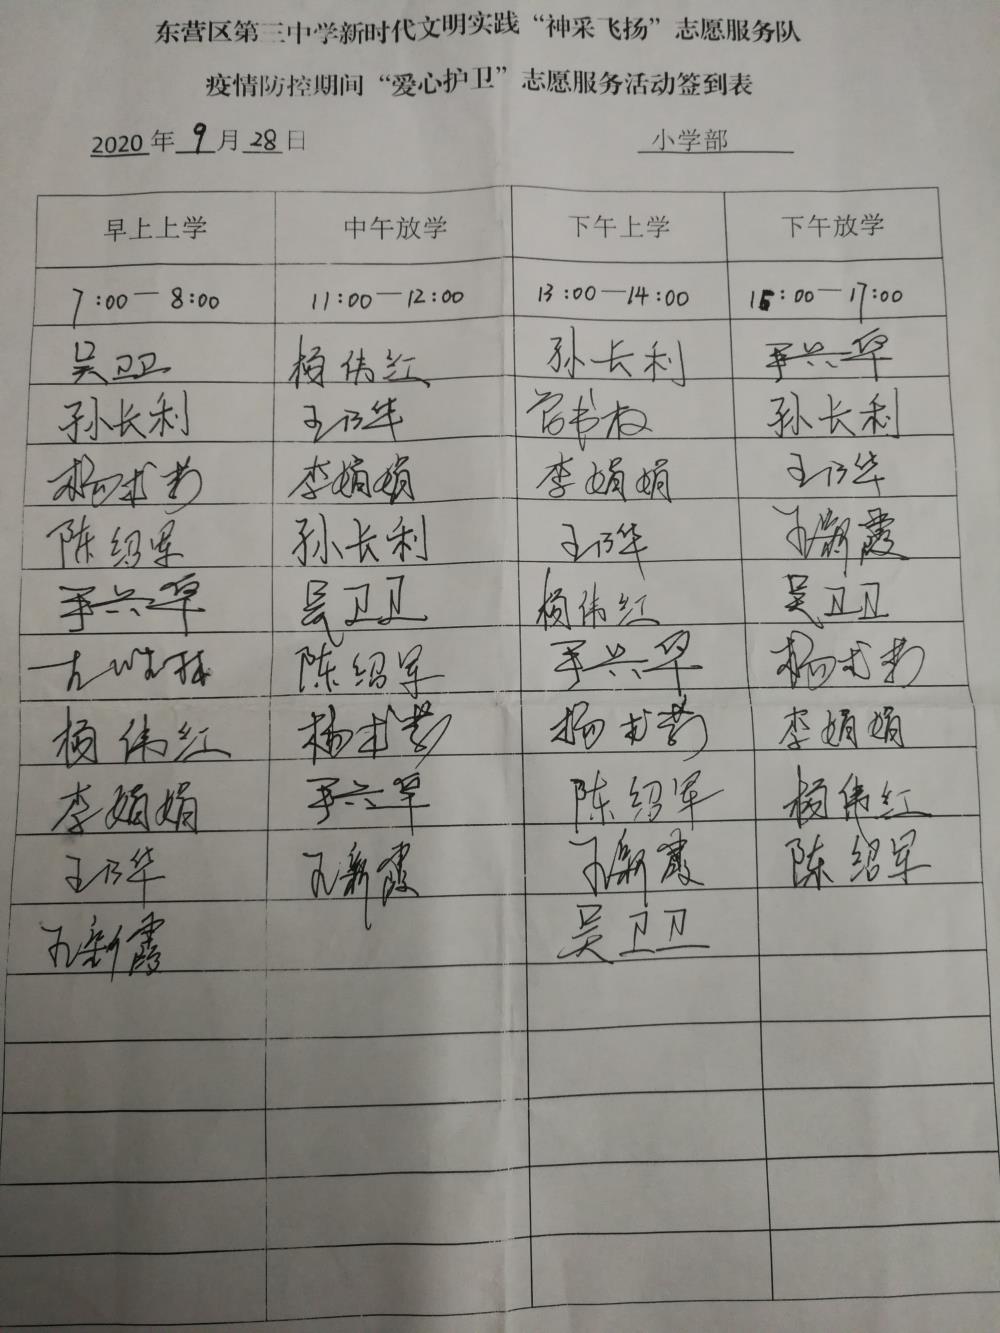 东营区第三中学新时代文明实践“神采飞扬”志愿服务队
疫情防控期间“爱心护卫”志愿服务活动签到表
2020年9月28日 小学部
早上上学 中午放学 下午上学 下午放学
7:00—8:00 11:00—12:00 13:00—14:00 16:00—17:00
吴卫卫 杨伟红 孙长利
孙长利 王乃华 孙长利
李娟娟 李娟娟 王乃华
陈绍军 孙长利 王乃华 王新霞
吴卫卫 杨伟红 吴卫卫
陈绍军
杨伟红 李娟娟
李娟娟 陈绍军 杨伟红
王乃华 王新霞 王新霞 陈绍军
王新霞 吴卫卫